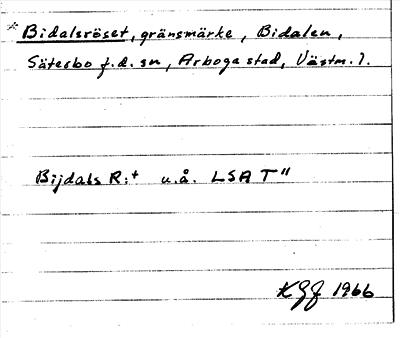 *Bidalsröset, gränsmärke, Bidalen,
Säterbo f.d. sn, Arboga stad, Västm. l.
Bijdals R:+ u.å. LSA T"
KGJ 1966